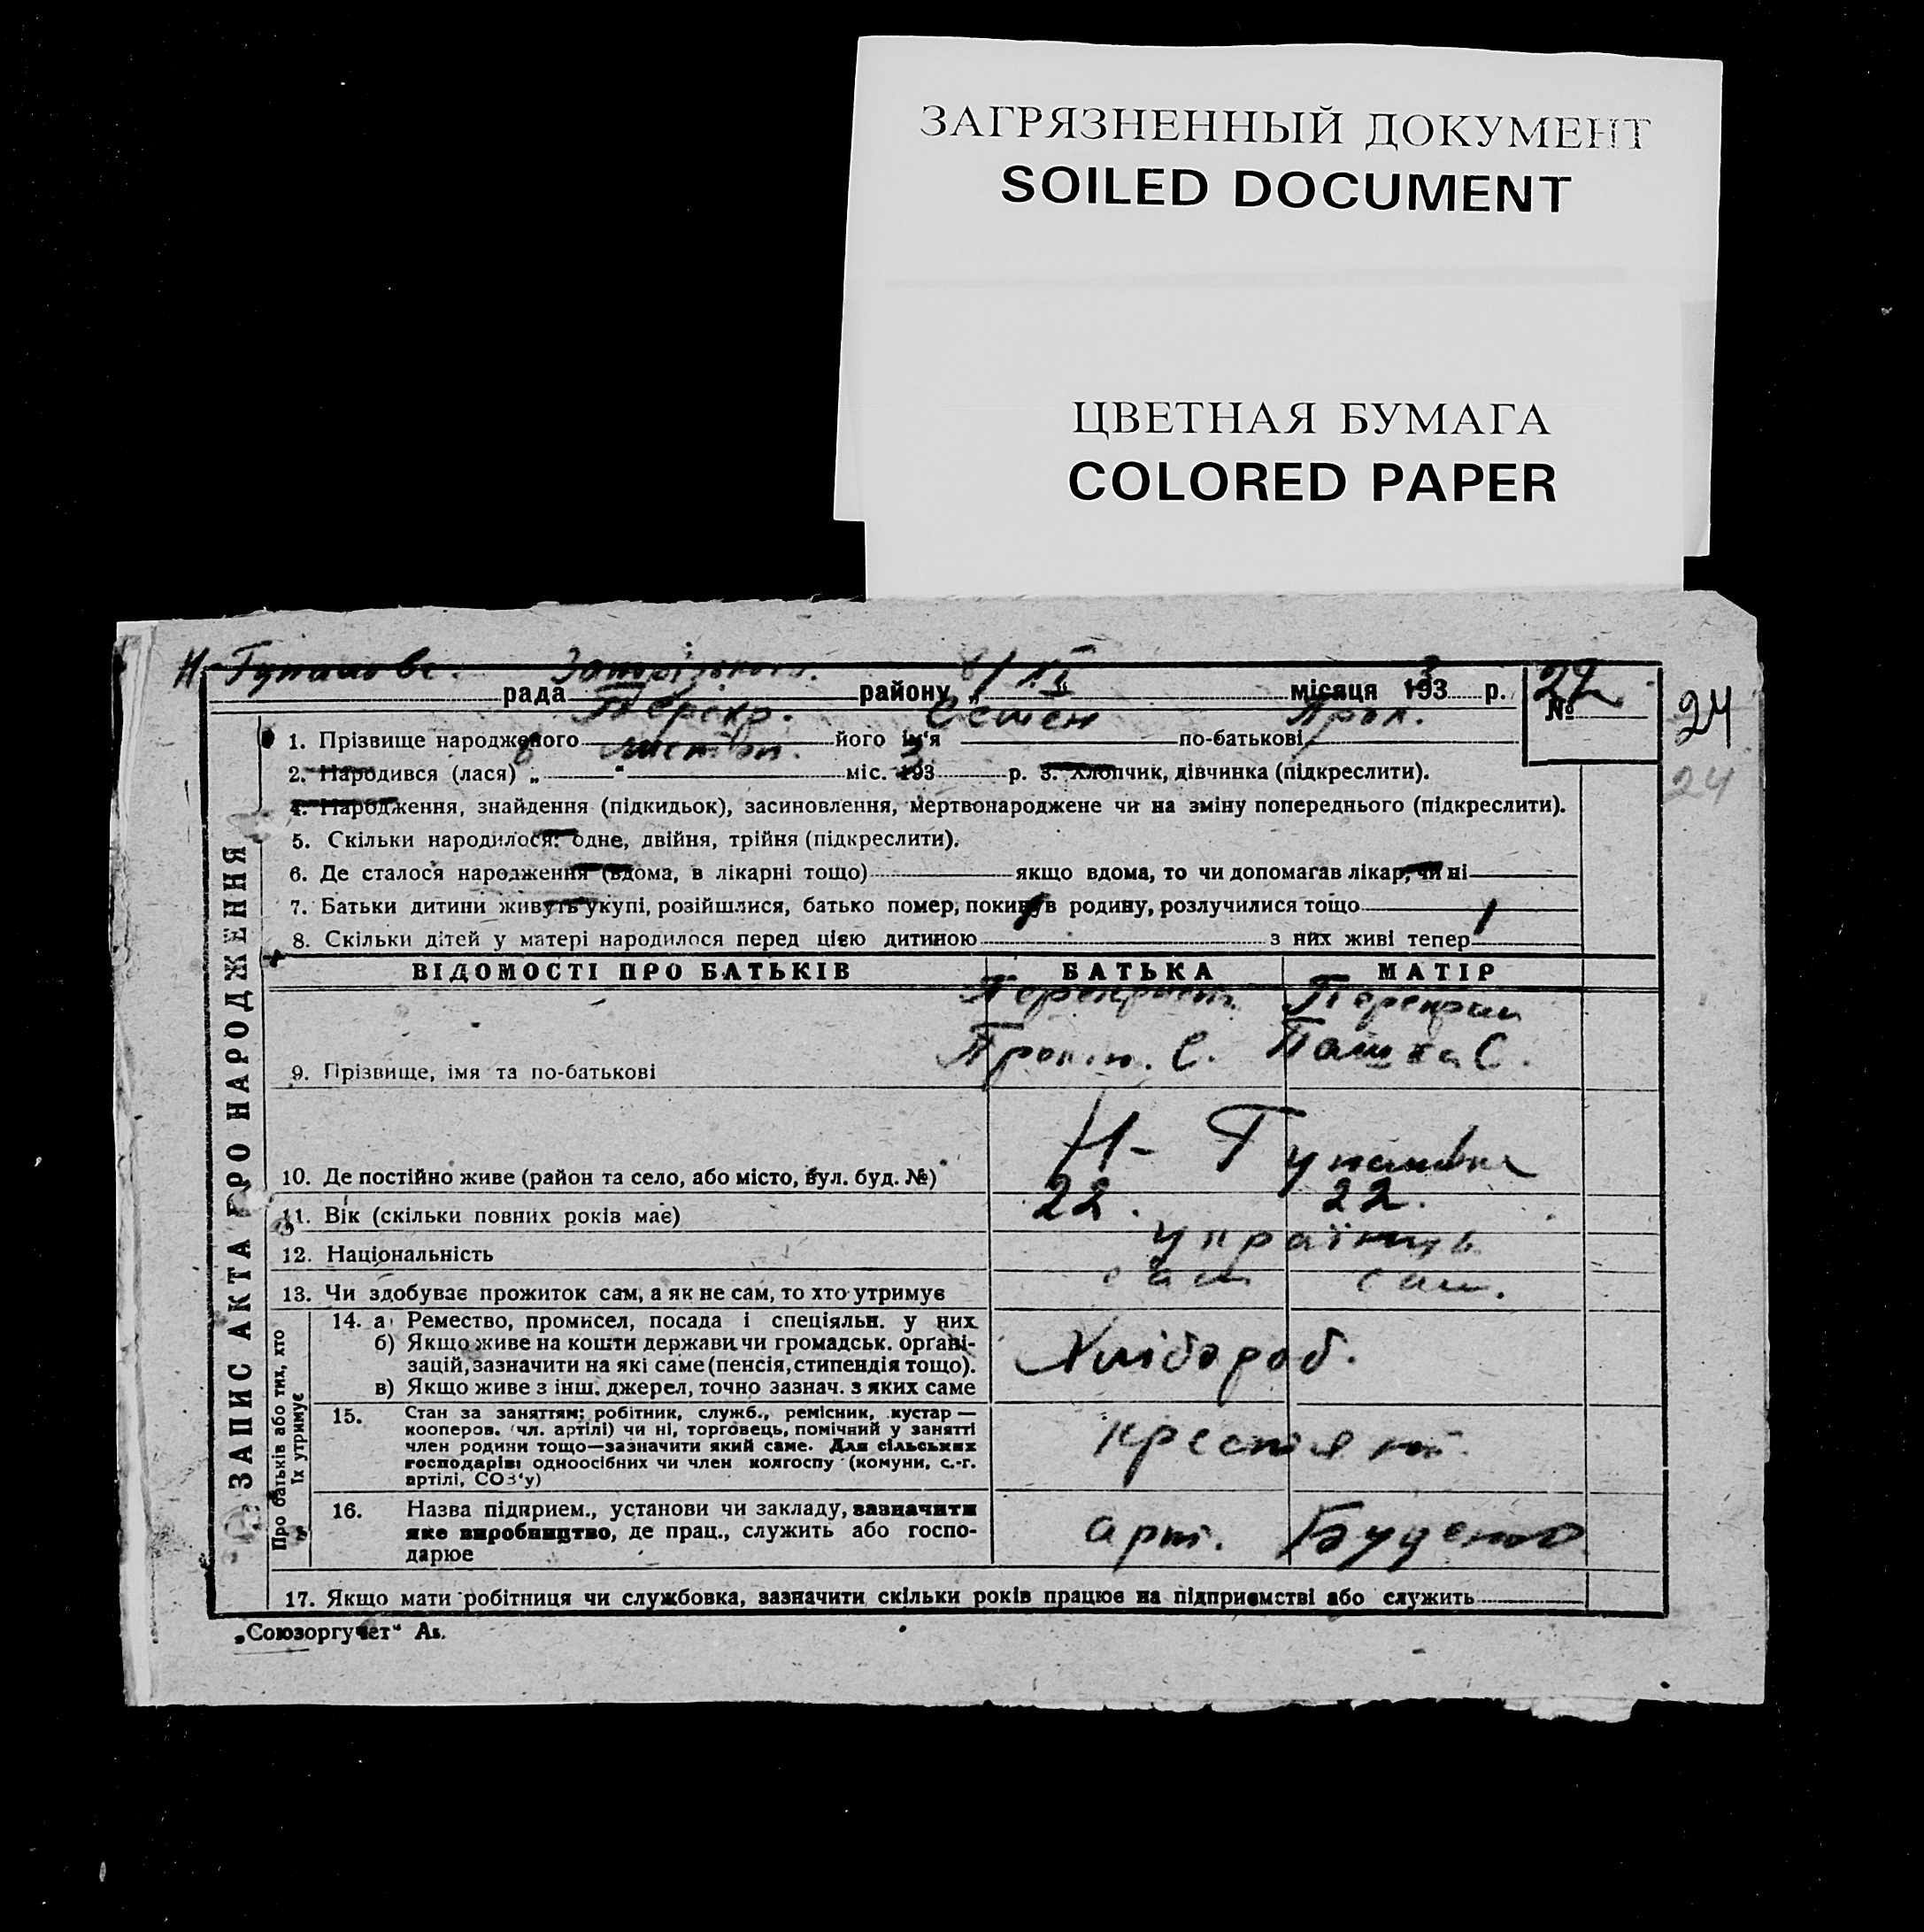 ЗАГРЯЗНЕННЫЙ ДОКУМЕНТ
SOILED DOCUMENT
ЦВЕТНАЯ БУМАГА
COLORED PAPER
рада району „ " місяця 1933 р. № 27
24
24
1. Прізвище народженого Перехр. його ім'я Семен по-батькові Прок.
2. Народився (лася) „ " міс. 1933 р. 3. Хлопчик, дівчинка (підкреслити).
4. Народження, знайдення (підкидьок), засиновлення, мертвонароджене чи на зміну попереднього (підкреслити).
5. Скільки народилося: одне, двійня, трійня (підкреслити).
6. Де сталося народження (вдома, в лікарні тощо) якщо вдома, то чи допомагав лікар, чи ні
7. Батьки дитини живуть укупі, розійшлися, батько помер, покинув родину, розлучилися тощо
8. Скільки дітей у матері народилося перед цією дитиною 1 з них живі тепер 1
ЗАПИС АКТА ПРО НАРОДЖЕННЯ
ВІДОМОСТІ ПРО БАТЬКІВ БАТЬКА МАТІР
9. Прізвище, імя та по-батькові
10. Де постійно живе (район та село, або місто, вул. буд. №)
11. Вік (скільки повних років має) 22. 22.
12. Національність українць
13. Чи здобуває прожиток сам, а як не сам, то хто утримує сам сам.
Про батьків або тих, хто їх утримує
14. а) Ремество, промисел, посада і спеціяльн. у них
б) Якщо живе на кошти держави чи громадськ. орґані-
зацій, зазначити на які саме (пенсія, стипендія тощо).
в) Якщо живе з інш. джерел, точно зазнач. з яких саме
Хлібороб.
15. Стан за заняттям: робітник, служб., ремісник, кустар —
кооперов. (чл. артілі) чи ні, торговець, помічний у занятті
член родини тощо—зазначити який саме. Для сільських
господарів: одноосібних чи член колгоспу (комуни, с.-г.
артілі, СОЗ'у)
16. Назва підприєм., установи чи закладу, зазначити
яке виробництво, де прац., служить або госпо-
дарює
арт.
17. Якщо мати робітниця чи службовка, зазначити скільки років працює на підприємстві або служить
„Союзоргучет"